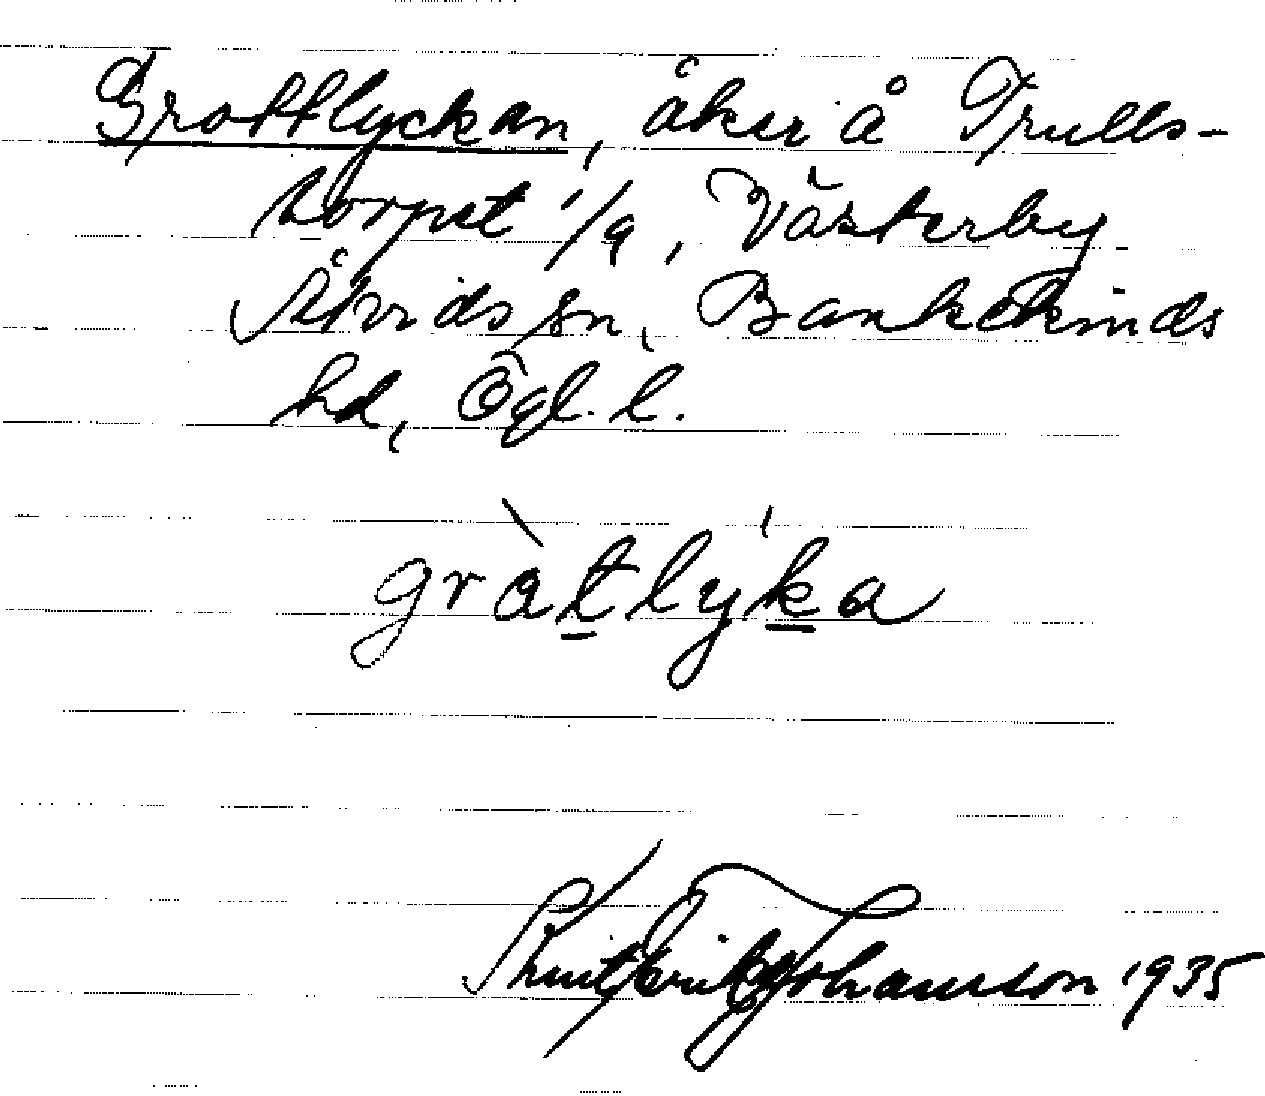 Grottlyckan, åker å Trulls-
torpet 1/9, Västerby
Åtvids sn, Bankekinds
hd, Ögl. l.
gràtlýka
Knut Erik Johansson 1935